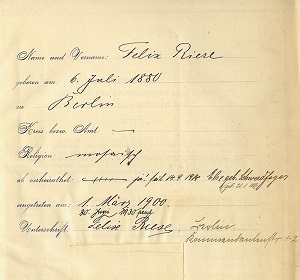 Name und Vorname: Felix Riese
geboren am 6. Juli 1880
zu Berlin
Kreis bezw. Amt —
Religion: mosaisch
ob verheirathet: ja! seit 14.9.1914 Else geb.
eingetreten am: 1. März 1900.
30. Juni 1930
Unterschrift: Felix Riese, Berlin
Kommandantenstr.